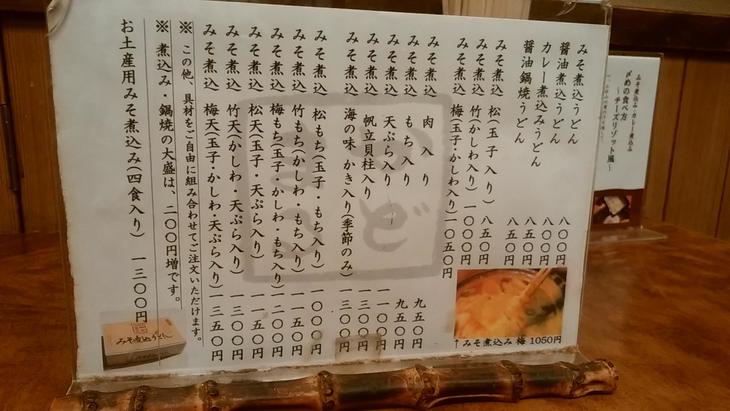 みそ煮込うどん 八〇〇円
醤油煮込うどん 八〇〇円
カレー煮込みうどん 八五〇円
醤油鍋焼うどん 八五〇円
みそ煮込 松(玉子入り) 八五〇円
みそ煮込 竹(かしわ入り) 一〇〇〇円
みそ煮込 梅(玉子・かしわ入り) 一〇五〇円
みそ煮込 肉入り 九五〇円
みそ煮込 もち入り 九五〇円
みそ煮込 天ぷら入り 一一〇〇円
みそ煮込 帆立貝柱入り 一三〇〇円
みそ煮込 海の味 かき入り(季節のみ) 一三〇〇円
みそ煮込 松もち(玉子・もち入り) 一〇〇〇円
みそ煮込 竹もち(かしわ・もち入り) 一一五〇円
みそ煮込 梅もち(玉子・かしわ・もち入り) 一二〇〇円
みそ煮込 松天(玉子・天ぷら入り) 一一五〇円
みそ煮込 竹天(かしわ・天ぷら入り) 一三〇〇円
みそ煮込 梅天(玉子・かしわ・天ぷら入り) 一三五〇円
※この他、具材をご自由に組み合わせてご注文いただけます。
※煮込み・鍋焼の大盛は、二〇〇円増です。
お土産用みそ煮込み(四食入り) 一三〇〇円
↑みそ煮込み 梅 1050円
みそ煮込うどん
みそ煮込み・カレー煮込み
〆めの食べ方
〜チーズリゾット風〜